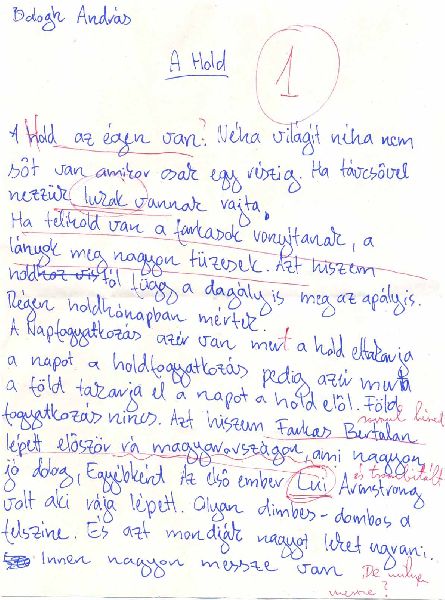 Balogh András
A Hold
1
A Hold az égen van? Néha világít néha nem
sőt van amikor csak egy részig. Ha távcsővel
nézzük lukak vannak rajta.
Ha telihold van a farkasok vonyítanak, a
lányok meg nagyon tüzesek. Azt hiszem
holdhoz től függ a dagály is meg az apály is.
Régen holdhónapban mértek.
A Napfogyatkozás azér van mert a hold eltakarja
a napot a holdfogyatkozás pedig azér mert
a föld takarja el a napot a hold elől. Föld
fogyatkozás nincs. Azt hiszem Farkas Bertalan
lépett először rá magyarországon, ami nagyon
jó dolog, Egyébként Az első ember Lui Armstrong és trombitált
volt aki rája lépett. Olyan dimbes-dombos a
felszíne. És azt mondják nagyot lehet ugrani.
Innen nagyon messze van De milyen
messze?